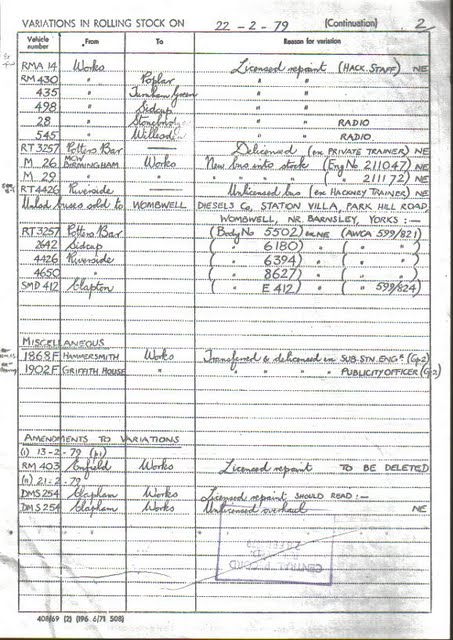 VARIATIONS IN ROLLING STOCK ON 22 - 2 - 79 (Continuation) 2
Vehicle number From To Reason for variation
RMA 14 Works Licensed repaint (HACK STAFF) NE
RM 430 " Poplar " "
435 " Turnham Green " "
498 " Sidcup " "
28 " Stonebridge " " RADIO
545 " Willesden " " RADIO
RT 3257 Potters Bar — Delicensed (ex PRIVATE TRAINER) NE
M 26 MCW BIRMINGHAM Works New bus into stock (Eng No 211047) NE
M 29 " " " " " ( " 211172) NE
RT 4426 Riverside — Unlicensed bus (ex HACKNEY TRAINER) NE
Unlsd buses sold to WOMBWELL DIESELS Co, STATION VILLA, PARK HILL ROAD,
WOMBWELL, NR. BARNSLEY, YORKS :—
RT 3257 Potters Bar (Body No 5502) NE (AWCA 599/821)
2642 Sidcup ( " 6180) " ( " " )
4426 Riverside ( " 6394) " ( " " )
4650 " ( " 8627) " ( " " )
SMD 412 Clapton ( " E 412) " ( " 599/824)
MISCELLANEOUS
1868F HAMMERSMITH Works Transferred & delicensed in SUB.STN.ENGR. (Gp2)
1902F GRIFFITH HOUSE " " " " PUBLICITY OFFICER (Gp2)
AMENDMENTS TO VARIATIONS
(i) 13-2-79 (p1)
RM 403 Enfield Works Licensed repaint TO BE DELETED
(ii) 21-2-79
DMS 254 Clapham Works Licensed repaint, SHOULD READ :—
DMS 254 Clapham Works Unlicensed overhaul NE
408/69 (2) (196 6/71 508)